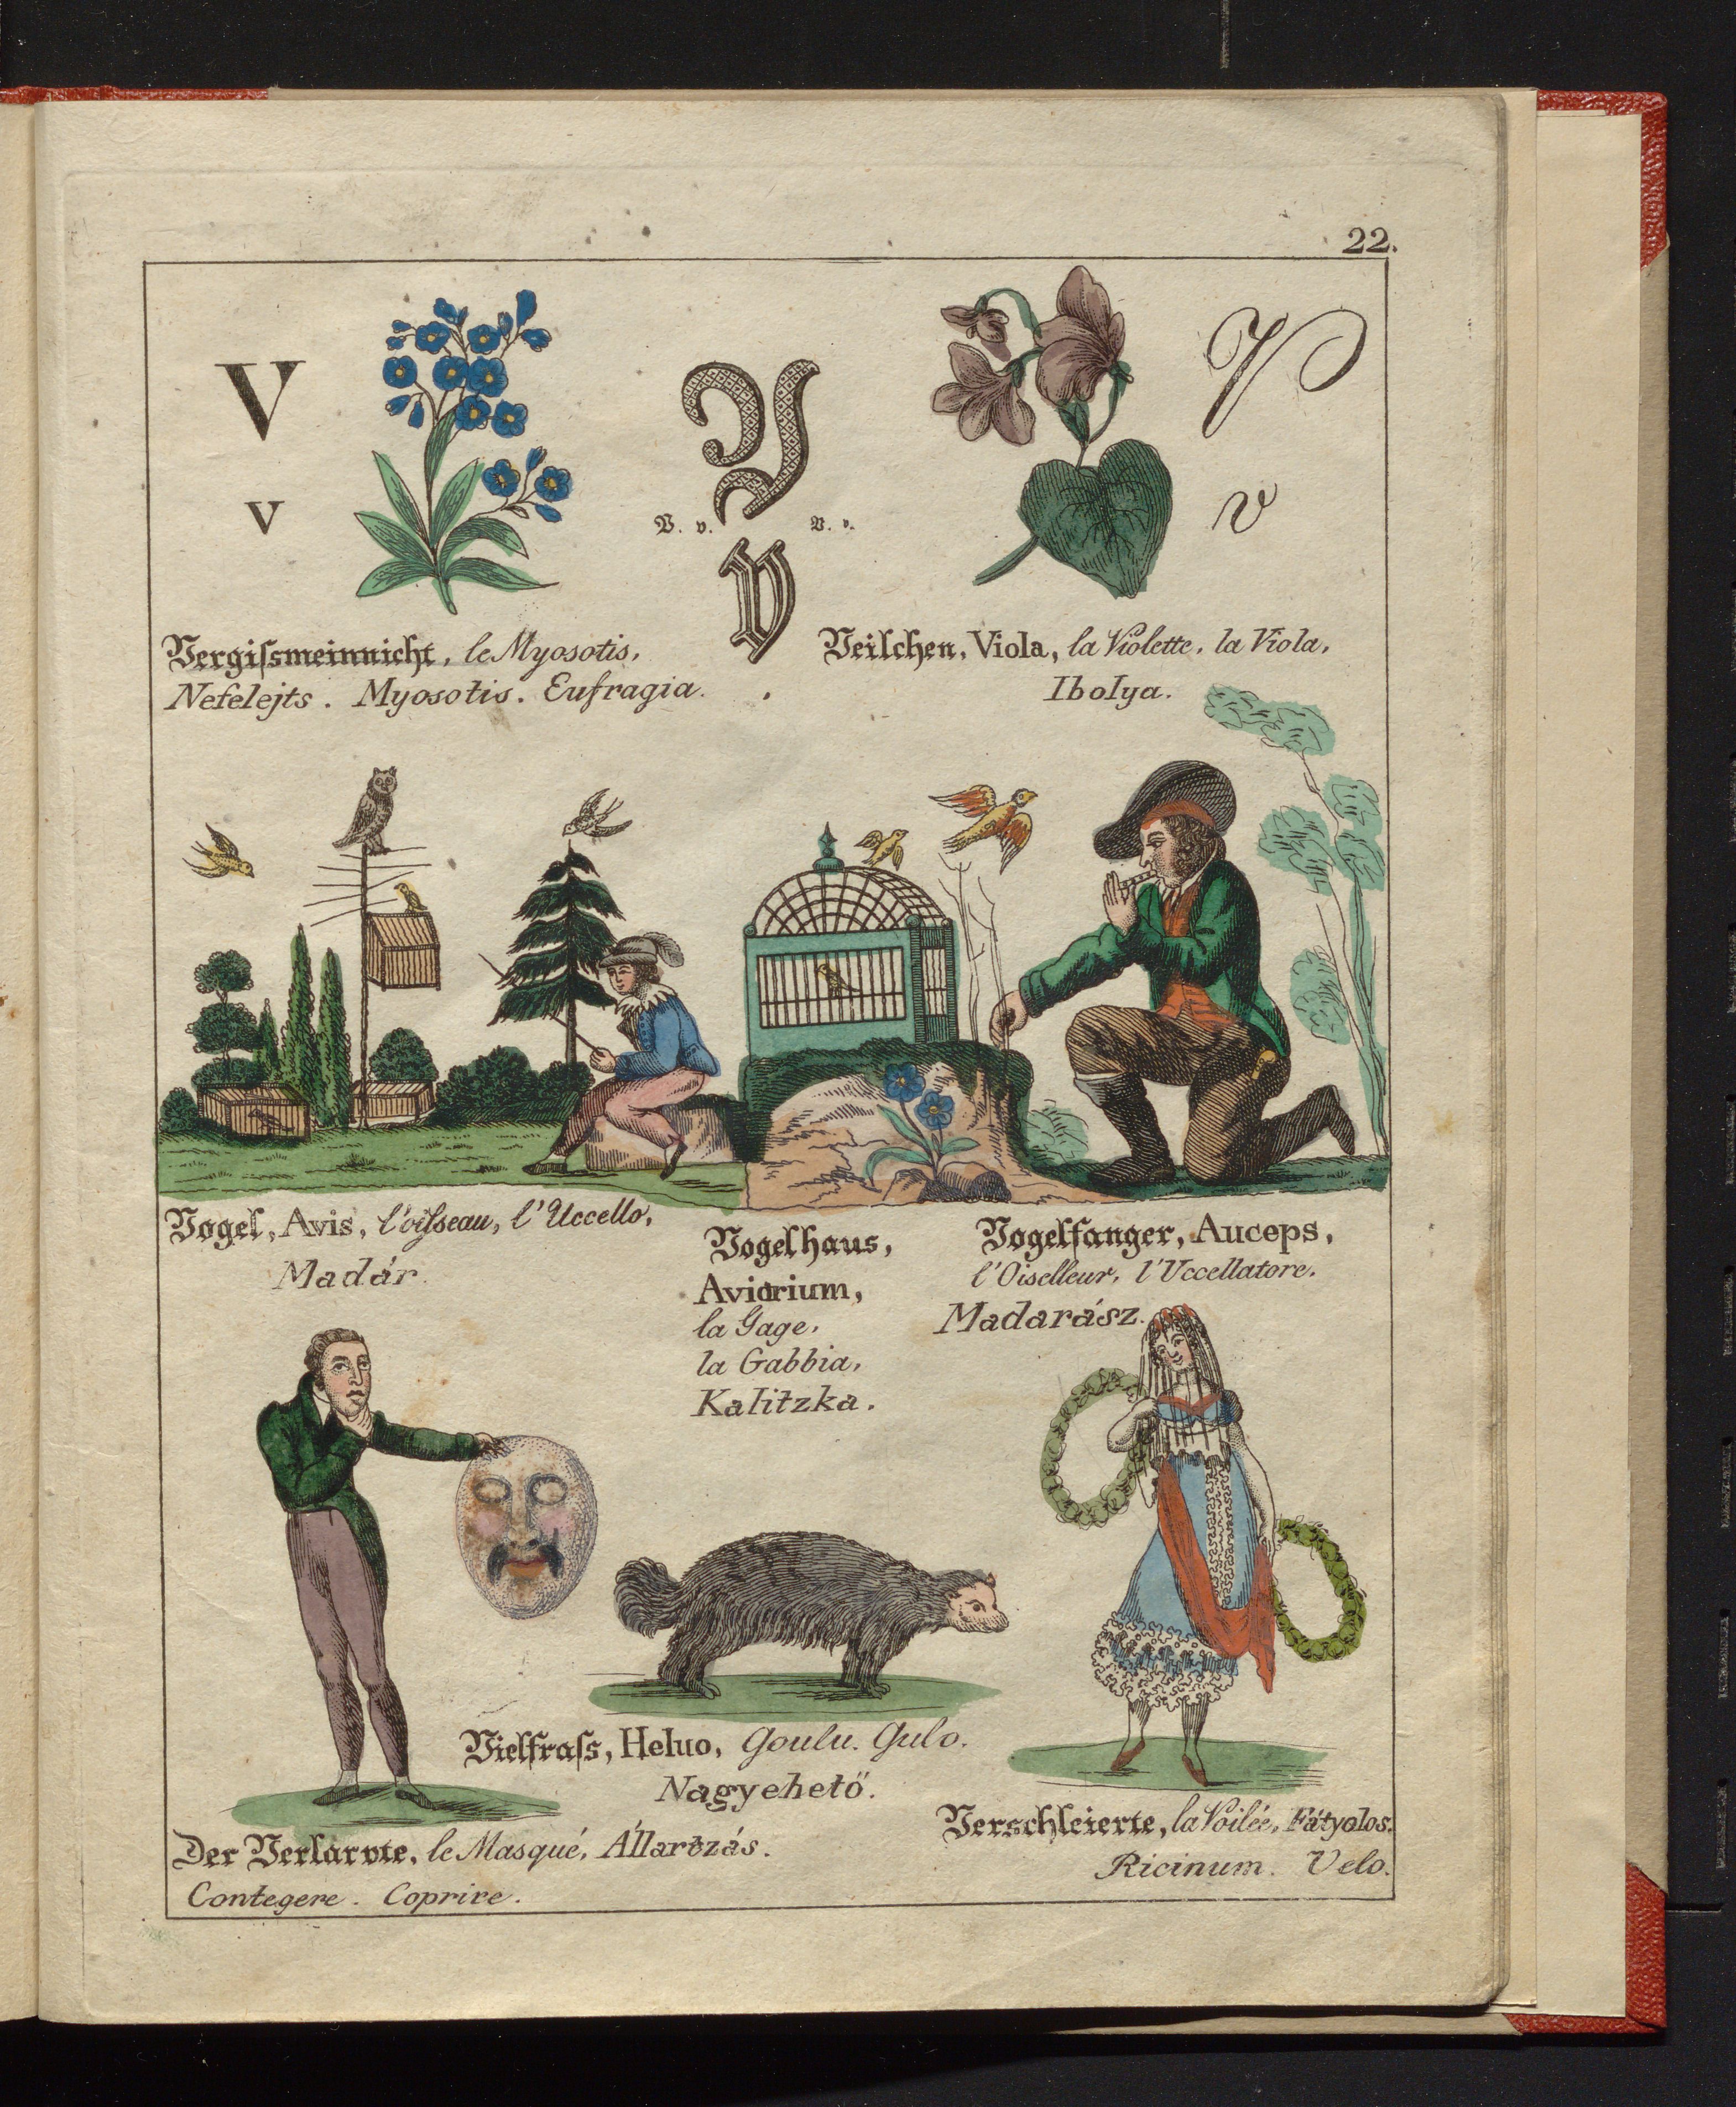 22.
V
V
V
v
V. v.
V. v.
v
V
Vergiſsmeinnicht, le Myosotis,
Nefelejts. Myosotis. Eufragia.
Veilchen, Viola, la Violette, la Viola,
Ibolya.
Vogel, Avis, l'oiſseau, l'Uccello,
Madár.
Vogelhaus,
Aviarium,
la Gage,
la Gabbia,
Kalitzka.
Vogelfanger, Auceps,
l'Oiselleur, l'Uccellatore.
Madarász.
Vielfraſs, Heluo, Goulu. Gulo.
Nagyehető.
Der Verlarvte, le Masqué, Állartzás.
Contegere. Coprire.
Verschleierte, la Voilée, Fátyolos.
Ricinum. Velo.